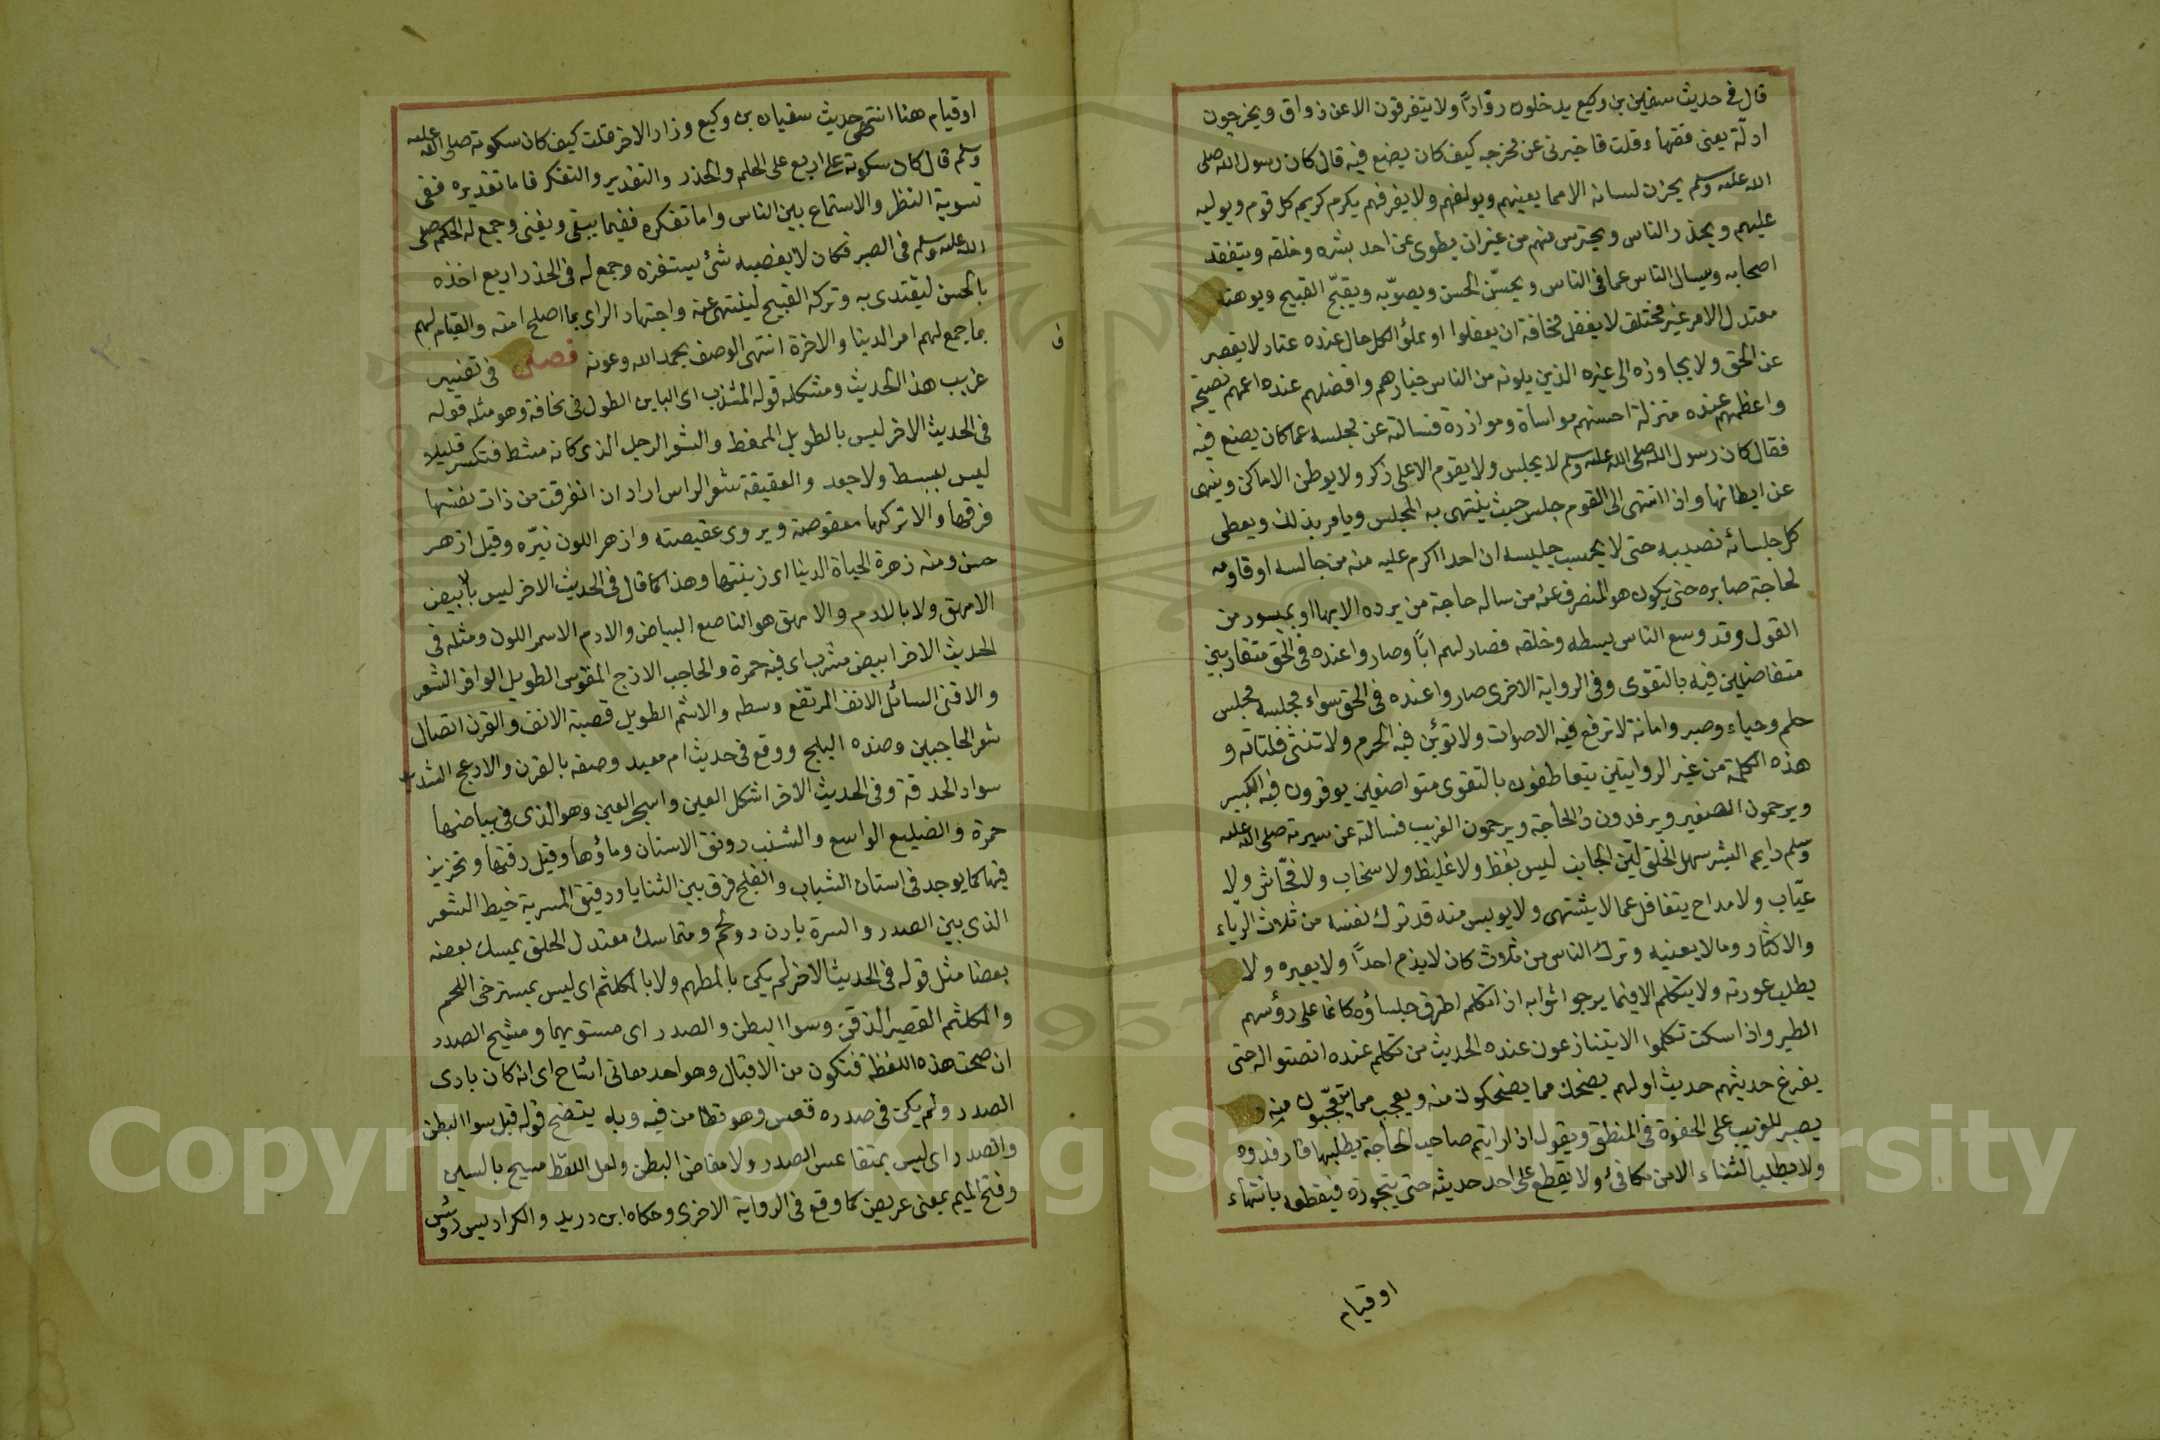 قال في حديث سفين بن وكيع يدخلون روّادًا ولا يتفرقون الا عن ذواق ويخرجون
ادلّة يعني فقهاء قلت فاخبرني عن مخرجه كيف كان يصنع فيه قال كان رسول الله صلى
الله عليه وسلم يخزن لسانه الا مما يعينهم ويولفهم ولا يفرقهم يكرم كريم كل قوم ويوليه
عليهم ويحذر الناس ويحترس منهم من غير ان يطوى عن احد بشره وخلقه ويتفقد
اصحابه ويسال الناس عما في الناس ويحسّن الحسن ويصوّبه ويقبّح القبيح ويوهنه
معتدل الامر غير مختلف لا يغفل مخافة ان يغفلوا او يملوا لكل حال عنده عتاد لا يقصر
عن الحق ولا يجاوزه الى غيره الذين يلونه من الناس خيارهم وافضلهم عنده اعمهم نصيحة
واعظمهم عنده منزلة احسنهم مواساة وموازرة فسالته عن مجلسه عما كان يصنع فيه
فقال كان رسول الله صلى الله عليه وسلم لا يجلس ولا يقوم الا على ذكر ولا يوطن الاماكن وينهى
عن ايطانها واذا انتهى الى القوم جلس حيث ينتهي به المجلس ويامر بذلك ويعطى
كل جلسائه نصيبه حتى لا يحسب جليسه ان احدا اكرم عليه منه من جالسه او قاومه
لحاجة صابره حتى يكون هو المنصرف عنه من ساله حاجة من يرده الا بها او بميسور من
القول وقد وسع الناس بسطه وخلقه فصار لهم ابًا وصاروا عنده في الحق متقاربين
متفاضلين فيه بالتقوى وفي الرواية الاخرى صاروا عنده في الحق سواء مجلسه مجلس
حلم وحياء وصبر وامانة لا ترفع فيه الاصوات ولا تؤبن فيه الحرم ولا تنثى فلتاته و
هذه الكلمة من غير الروايتين يتعاطفون بالتقوى متواضعين يوقرون فيه الكبير
ويرحمون الصغير ويرفدون ذا الحاجة ويرحمون الغريب فسالته عن سيرته صلى الله عليه
وسلم دايم البشر سهل الخلق لين الجانب ليس بفظ ولا غليظ ولا سخاب ولا فحّاش ولا
عيّاب ولا مداح يتغافل عما لا يشتهى ولا يويس منه قد ترك نفسه من ثلاث الرياء
والاكثار وما لا يعنيه وترك الناس من ثلاث كان لا يذم احدًا ولا يعيره ولا
يطلب عورته ولا يتكلم الا فيما يرجو اثوابه اذا تكلم اطرق جلساؤه كانما على رؤسهم
الطير واذا سكت تكلموا لا يتنازعون عنده الحديث من تكلم عنده انصتوا له حتى
يفرغ حديثهم حديث اولهم يضحك مما يضحكون منه ويعجب مما يتعجّبون منه و
يصبر للغريب على الجفوة في المنطق ويقول اذا رايتم صاحب الحاجة يطلبها فارفدوه
ولا يطلب الثناء الا من مكافئ ولا يقطع على احد حديثه حتى يتجوزه فيقطعه بانتهاء
او قيام
او قيام هنا انتهى حديث سفيان بن وكيع وزاد الاخر قلت كيف كان سكوته صلى الله عليه
وسلم قال كان سكوته على اربع على الحلم والحذر والتقدير والتفكر فاما تقديره ففي
تسوية النظر والاستماع بين الناس واما تفكره ففيما يبقى ويفنى وجمع له الحلم صلى
الله عليه وسلم في الصبر فكان لا يغضبه شئ يستفزه وجمع له في الحذر اربع اخذه
بالحسن ليقتدى به وتركه القبيح لينتهى عنه واجتهاد الراى بما اصلح امته والقيام لهم
بما جمع لهم امر الدنيا والاخرة انتهى الوصف بحمد الله وعونه فصل في تفسير
غريب هذا الحديث ومشكله قوله المشذب اى الباين الطول في نحافة وهو مثله قوله
في الحديث الاخر ليس بالطويل الممغط والشعر الرجل الذى كانه مشط فتكسر قليلا
ليس بسبط ولا جعد والعقيقة شعر الراس اراد ان انفرقت من ذات نفسها
فرقها والا تركها معقوصة ويروى عقيصته وازهر اللون نيّره وقيل ازهر
حسن ومنه زهرة الحياة الدنيا اى زينتها وهذا كما قال في الحديث الاخر ليس بالابيض
الامهق ولا بالادم والامهق هو الناصع البياض والادم الاسمر اللون ومثله في
الحديث الاخر ابيض مشرب اى فيه حمرة والحاجب الازج المقوس الطويل الوافر الشعر
والاقنى السائل الانف المرتفع وسطه والاشم الطويل قصبة الانف والقرن اتصال
شعر الحاجبين وضده البلج ووقع في حديث ام معبد وصفه بالقرن والادعج الشديد
سواد الحدقة وفي الحديث الاخر اشكل العين واسجر العين وهو الذى في بياضها
حمرة والضليع الواسع والشنب رونق الاسنان وماؤها وقيل رقتها وتحزيز
فيها كما يوجد في اسنان الشباب والفلج فرق بين الثنايا ودقيق المسربة خيط الشعر
الذى بين الصدر والسرة بادن ذو لحم ومتماسك معتدل الخلق يمسك بعضه
بعضا مثل قوله في الحديث الاخر لم يكن بالمطهم ولا بالمكلثم اى ليس بمسترخى اللحم
والمكلثم القصير الذقن وسوا البطن والصدر اى مستويهما ومشيح الصدر
ان صحت هذه اللفظة فتكون من الاقبال وهو احد معانى اشاح اى انه كان بادى
الصدر ولم يكن في صدره قعس وهو تطامن فيه وبه يتضح قوله قبل سوا البطن
والصدر اى ليس بمتقاعس الصدر ولا مفاض البطن ولعل اللفظ مسيح بالسين
وفتح الميم بمعنى عريض كما وقع في الرواية الاخرى وحكاه ابن دريد والكراديس رؤس
Copyright © King Saud University
1957